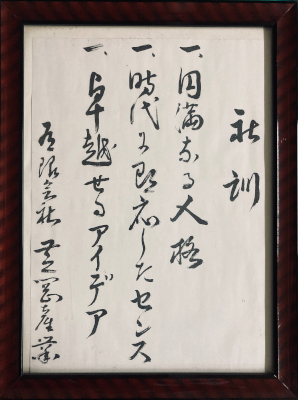 社訓
一、円満なる人格
一、時代に即応したセンス
一、卓越せるアイデア
有限会社 芝岡産業